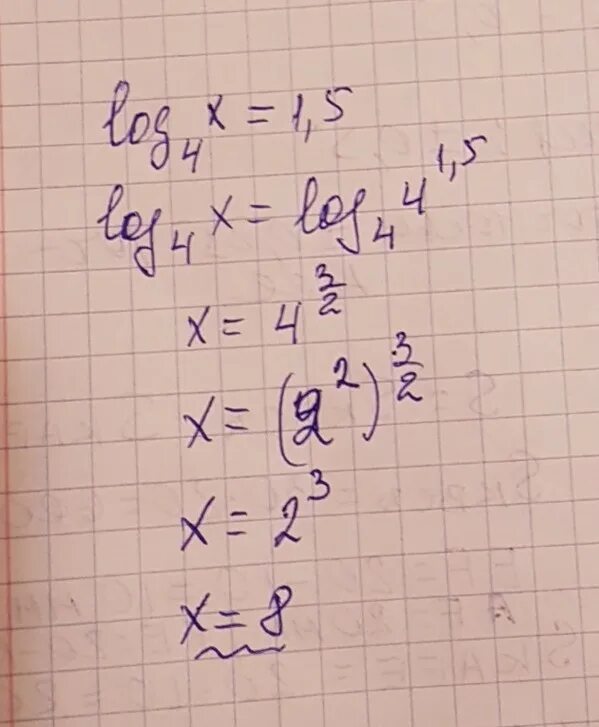 log₄ x = 1,5
log₄ x = log₄ 4^1,5
x = 4^(3/2)
x = (2²)^(3/2)
x = 2³
x = 8